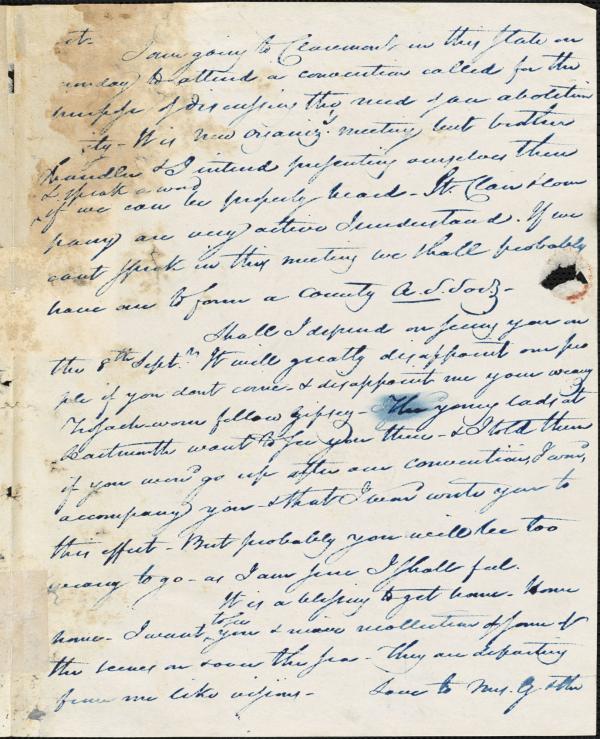 it-
I am going to Claremont in this State on
monday to attend a convention called for the
purpose of discussing the need of an abolition
It is new organizd. meeting but brother
& I intend presenting ourselves there
& speak a word
if we can be properly heard - St. Clair & com
pany are very active I understand. If we
cant speak in this meeting we shall probably
have one to form a county A. S. Socy -
Shall I depend on seeing you on
the 8th Septr. It will greatly disappoint our peo
ple if you dont come - & disappoint me your weary
fellow gipsey - The young lads at
Dartmouth want to see you there - & I told them
if you woud go up after our convention, I woud
accompany you - & that I woud write you to
this effect - But probably you will be too
weary to go - as I am sure I shall feel.
It is a blessing to get home - Home
to see
home - I want you & revive recollection of some of
the scenes on & over the sea - They are departing
from me like visions - Love to Mrs. G & the